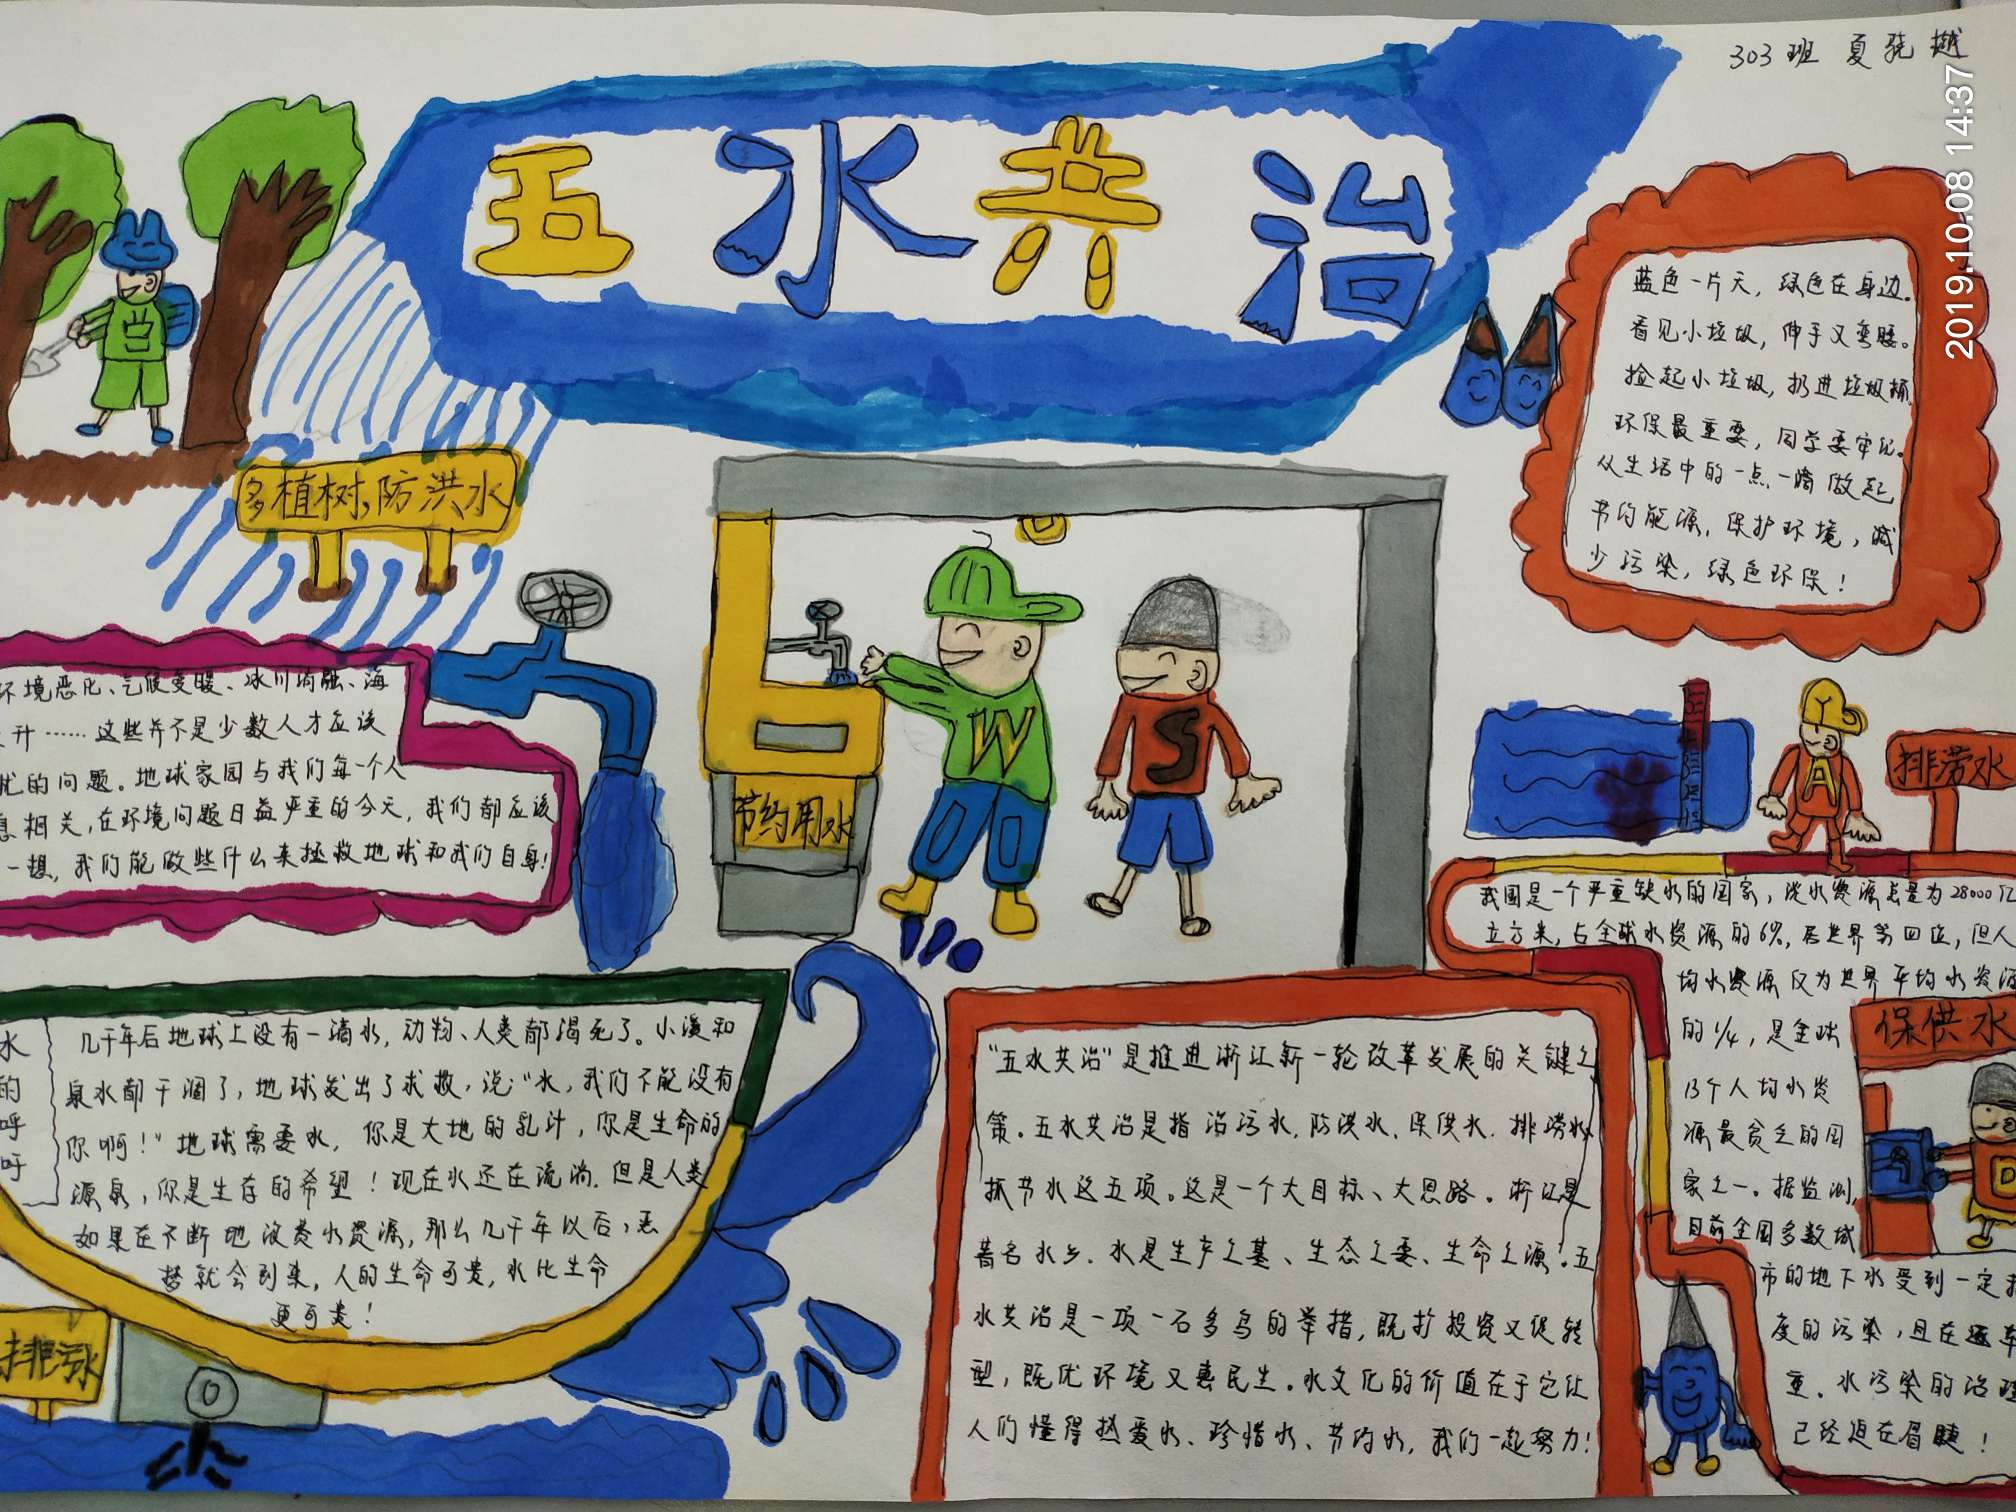 303班 夏骁樾
2019.10.08 14:37
五水共治
蓝色一片天，绿色在身边。
看见小垃圾，伸手又弯腰。
捡起小垃圾，扔进垃圾桶。
环保最重要，同学要牢记。
从生活中的一点一滴做起
节约能源，保护环境，减
少污染，绿色环保！
多植树，防洪水
环境恶化、气候变暖、冰川消融、海
升……这些并不是少数人才应该
忧的问题。地球家园与我们每一个人
息相关，在环境问题日益严重的今天，我们都应该
一想，我们能做些什么来拯救地球和我们自身！
节约用水
W
S
Y
A
排涝水
我国是一个严重缺水的国家，淡水资源总量为28000亿
立方米，占全球水资源的6%，居世界第四位，但人
均水资源仅为世界平均水资源
的1/4，是全球
13个人均水资
源最贫乏的国
家之一。据监测，
目前全国多数城
市的地下水受到一定
度的污染，且在逐年
重。水污染的治理
已经迫在眉睫！
保供水
D
水的呼吁
几千年后地球上没有一滴水，动物、人类都渴死了。小溪和
泉水都干涸了，地球发出了求救，说：“水，我们不能没有
你啊！”地球需要水，你是大地的乳汁，你是生命的
源泉，你是生存的希望！现在水还在流淌．但是人类
如果在不断地浪费水资源，那么几千年以后，恶
梦就会到来，人的生命可贵，水比生命
更可贵！
排污水
“五水共治”是推进浙江新一轮改革发展的关键之
策。五水共治是指治污水、防洪水、保供水、排涝水、
抓节水这五项。这是一个大目标、大思路。浙江是
著名水乡．水是生产之基、生态之要、生命之源！五
水共治是一项一石多鸟的举措，既扩投资又促转
型，既优环境又惠民生。水文化的价值在于它让
人们懂得热爱水、珍惜水、节约水，我们一起努力！